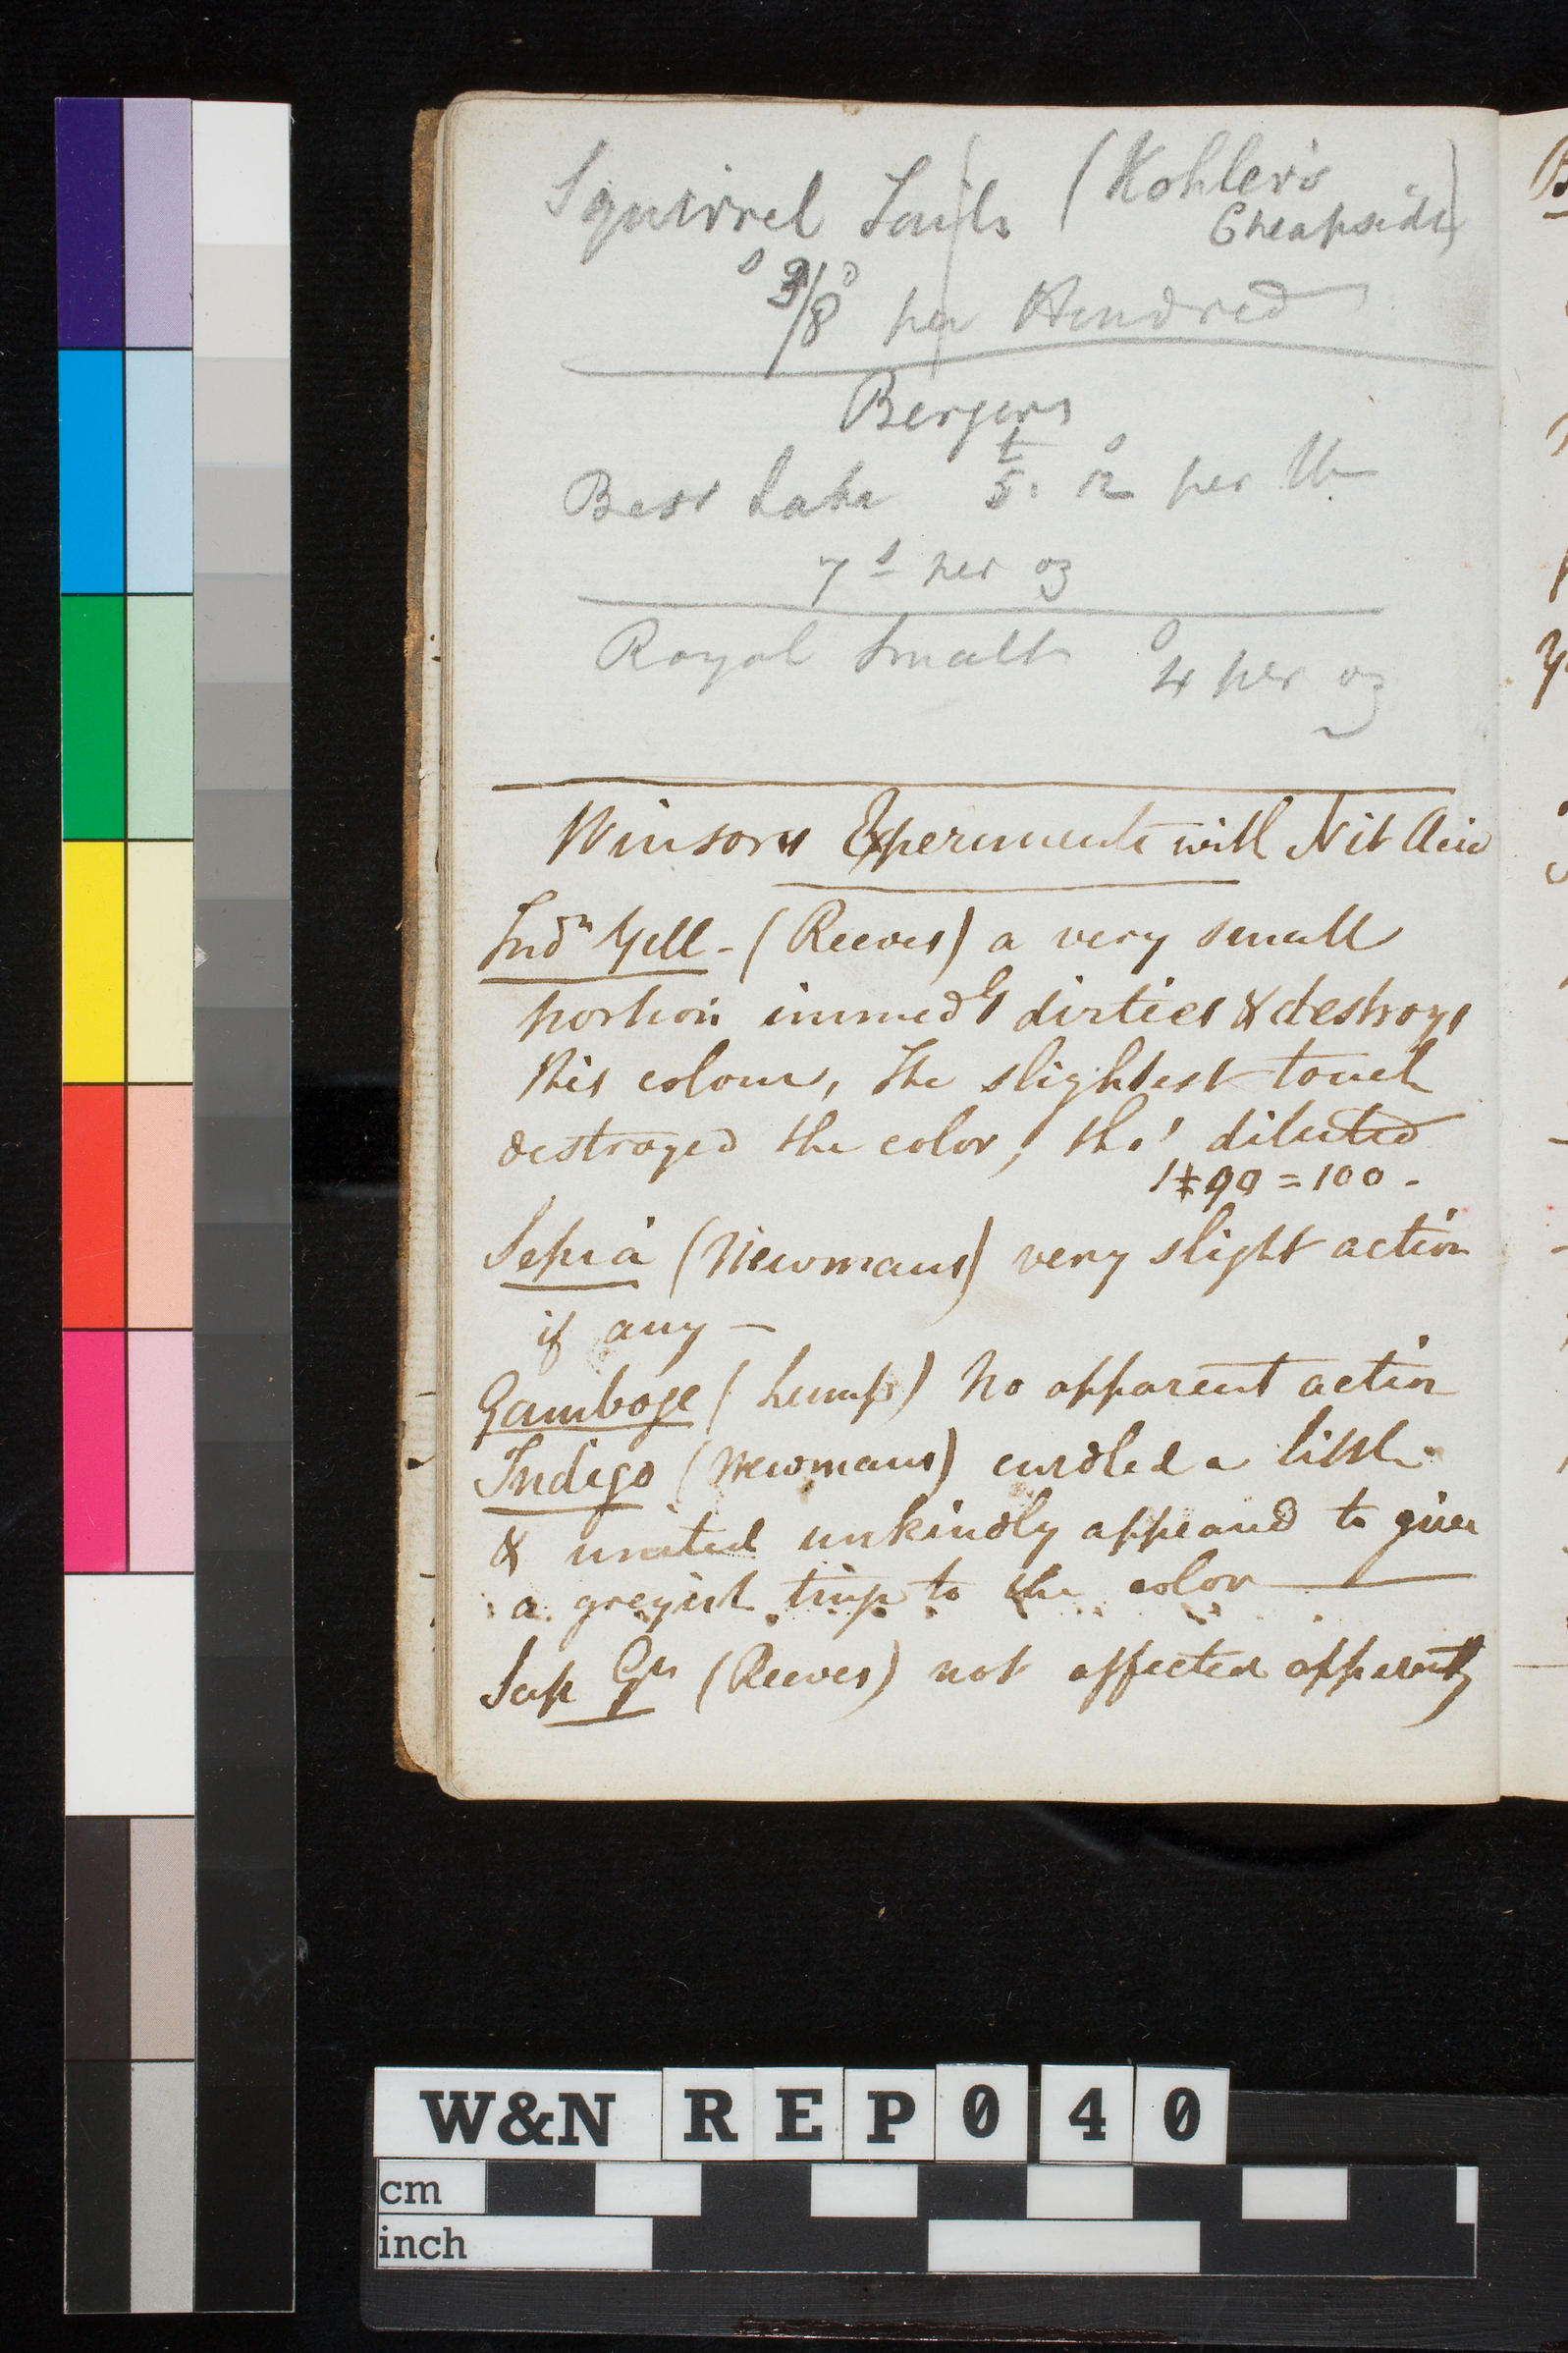 Squirrel Tails (Kohler's
Cheapside)
s 3/8 d per Hundred
Bergers
Best Lake £5. s12 per lb
7s per oz
Royal Smalt s4 per oz
Winsors Experiments with Nit Acid
Indn Yell - (Reeves) a very small
portion immedly dirties & destroys
this colour, The slightest touch
destroyed the color, tho' diluted
1+99 = 100 -
Sepia (Newmans) very slight action
if any —
Gamboge (Lump) No apparent action
Indigo (Newmans) curdled a little
& united unkindly appeared to give
a greyish tinge to the color
Sap Gn (Reeves) not affected apparently
W&N REP040
cm
inch